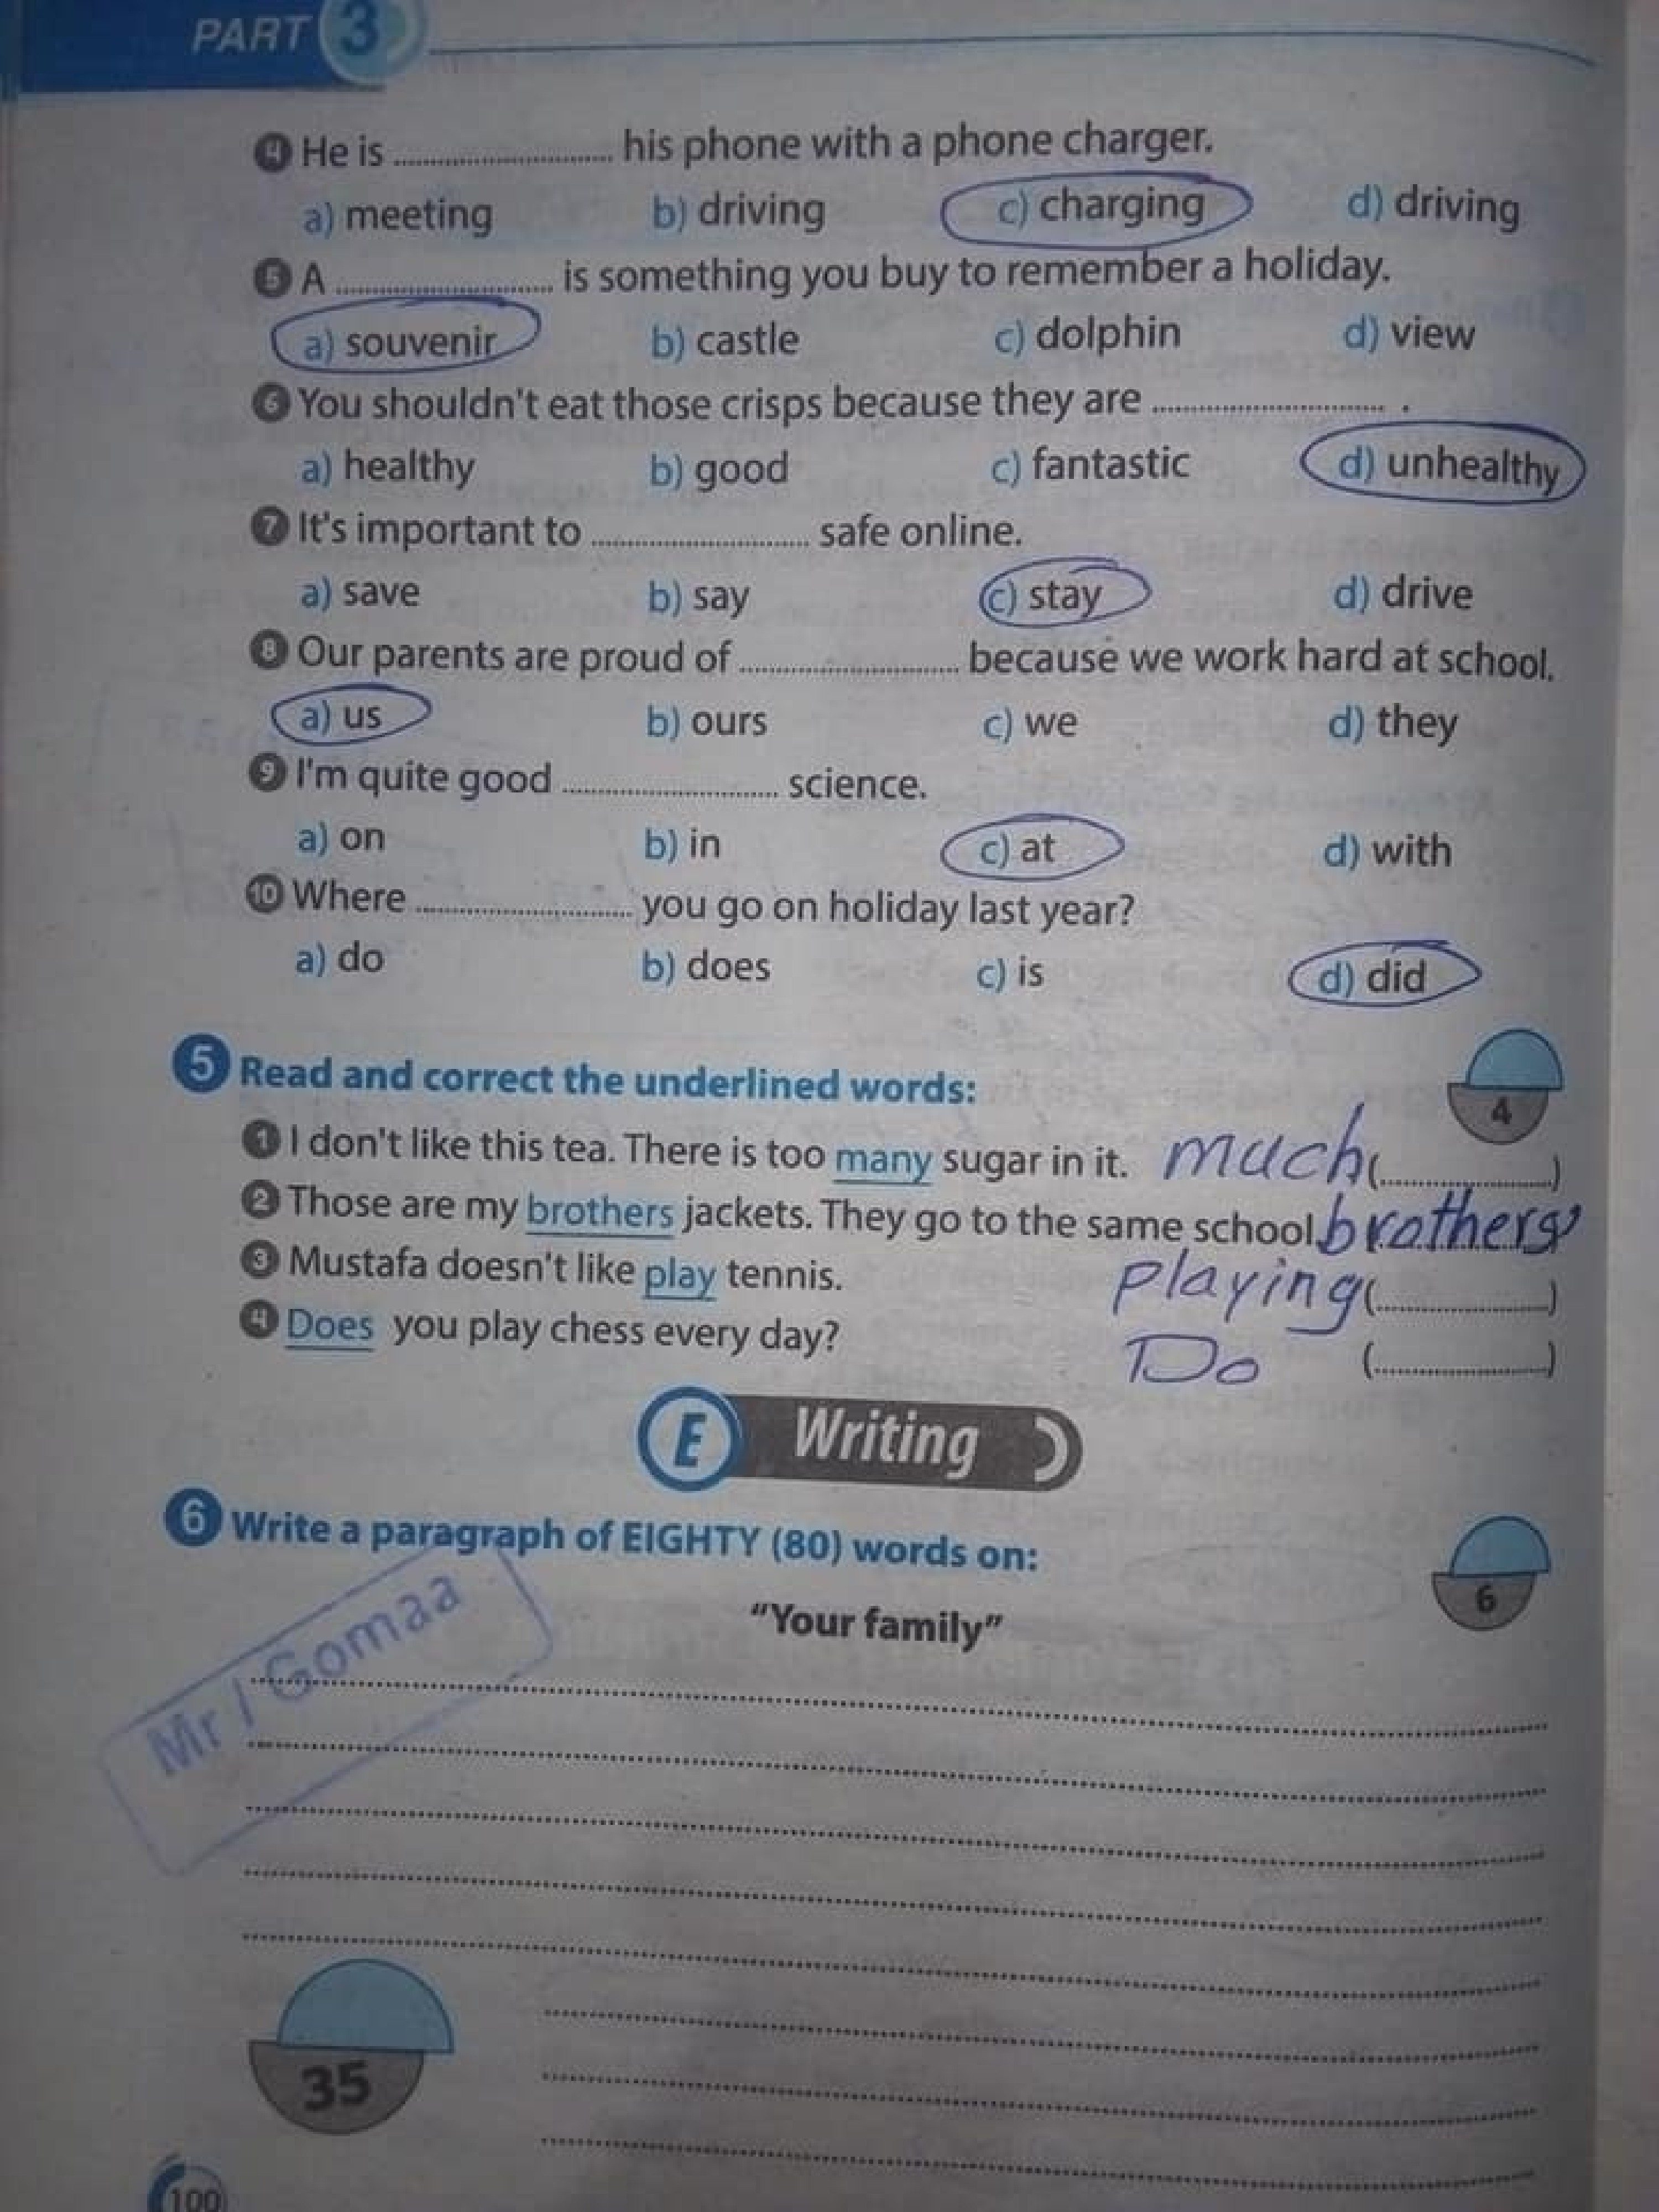 PART 3
4 He is ........................ his phone with a phone charger.
a) meeting b) driving c) charging d) driving
5 A ........................ is something you buy to remember a holiday.
a) souvenir b) castle c) dolphin d) view
6 You shouldn't eat those crisps because they are ........................ .
a) healthy b) good c) fantastic d) unhealthy
7 It's important to ........................ safe online.
a) save b) say c) stay d) drive
8 Our parents are proud of ........................ because we work hard at school.
a) us b) ours c) we d) they
9 I'm quite good ........................ science.
a) on b) in c) at d) with
10 Where ........................ you go on holiday last year?
a) do b) does c) is d) did
5 Read and correct the underlined words:
4
1 I don't like this tea. There is too many sugar in it. much (....................)
2 Those are my brothers jackets. They go to the same school. brothers'
3 Mustafa doesn't like play tennis. playing (....................)
4 Does you play chess every day? Do (....................)
E Writing
6 Write a paragraph of EIGHTY (80) words on:
6
"Your family"
Mr / Gomaa
35
100